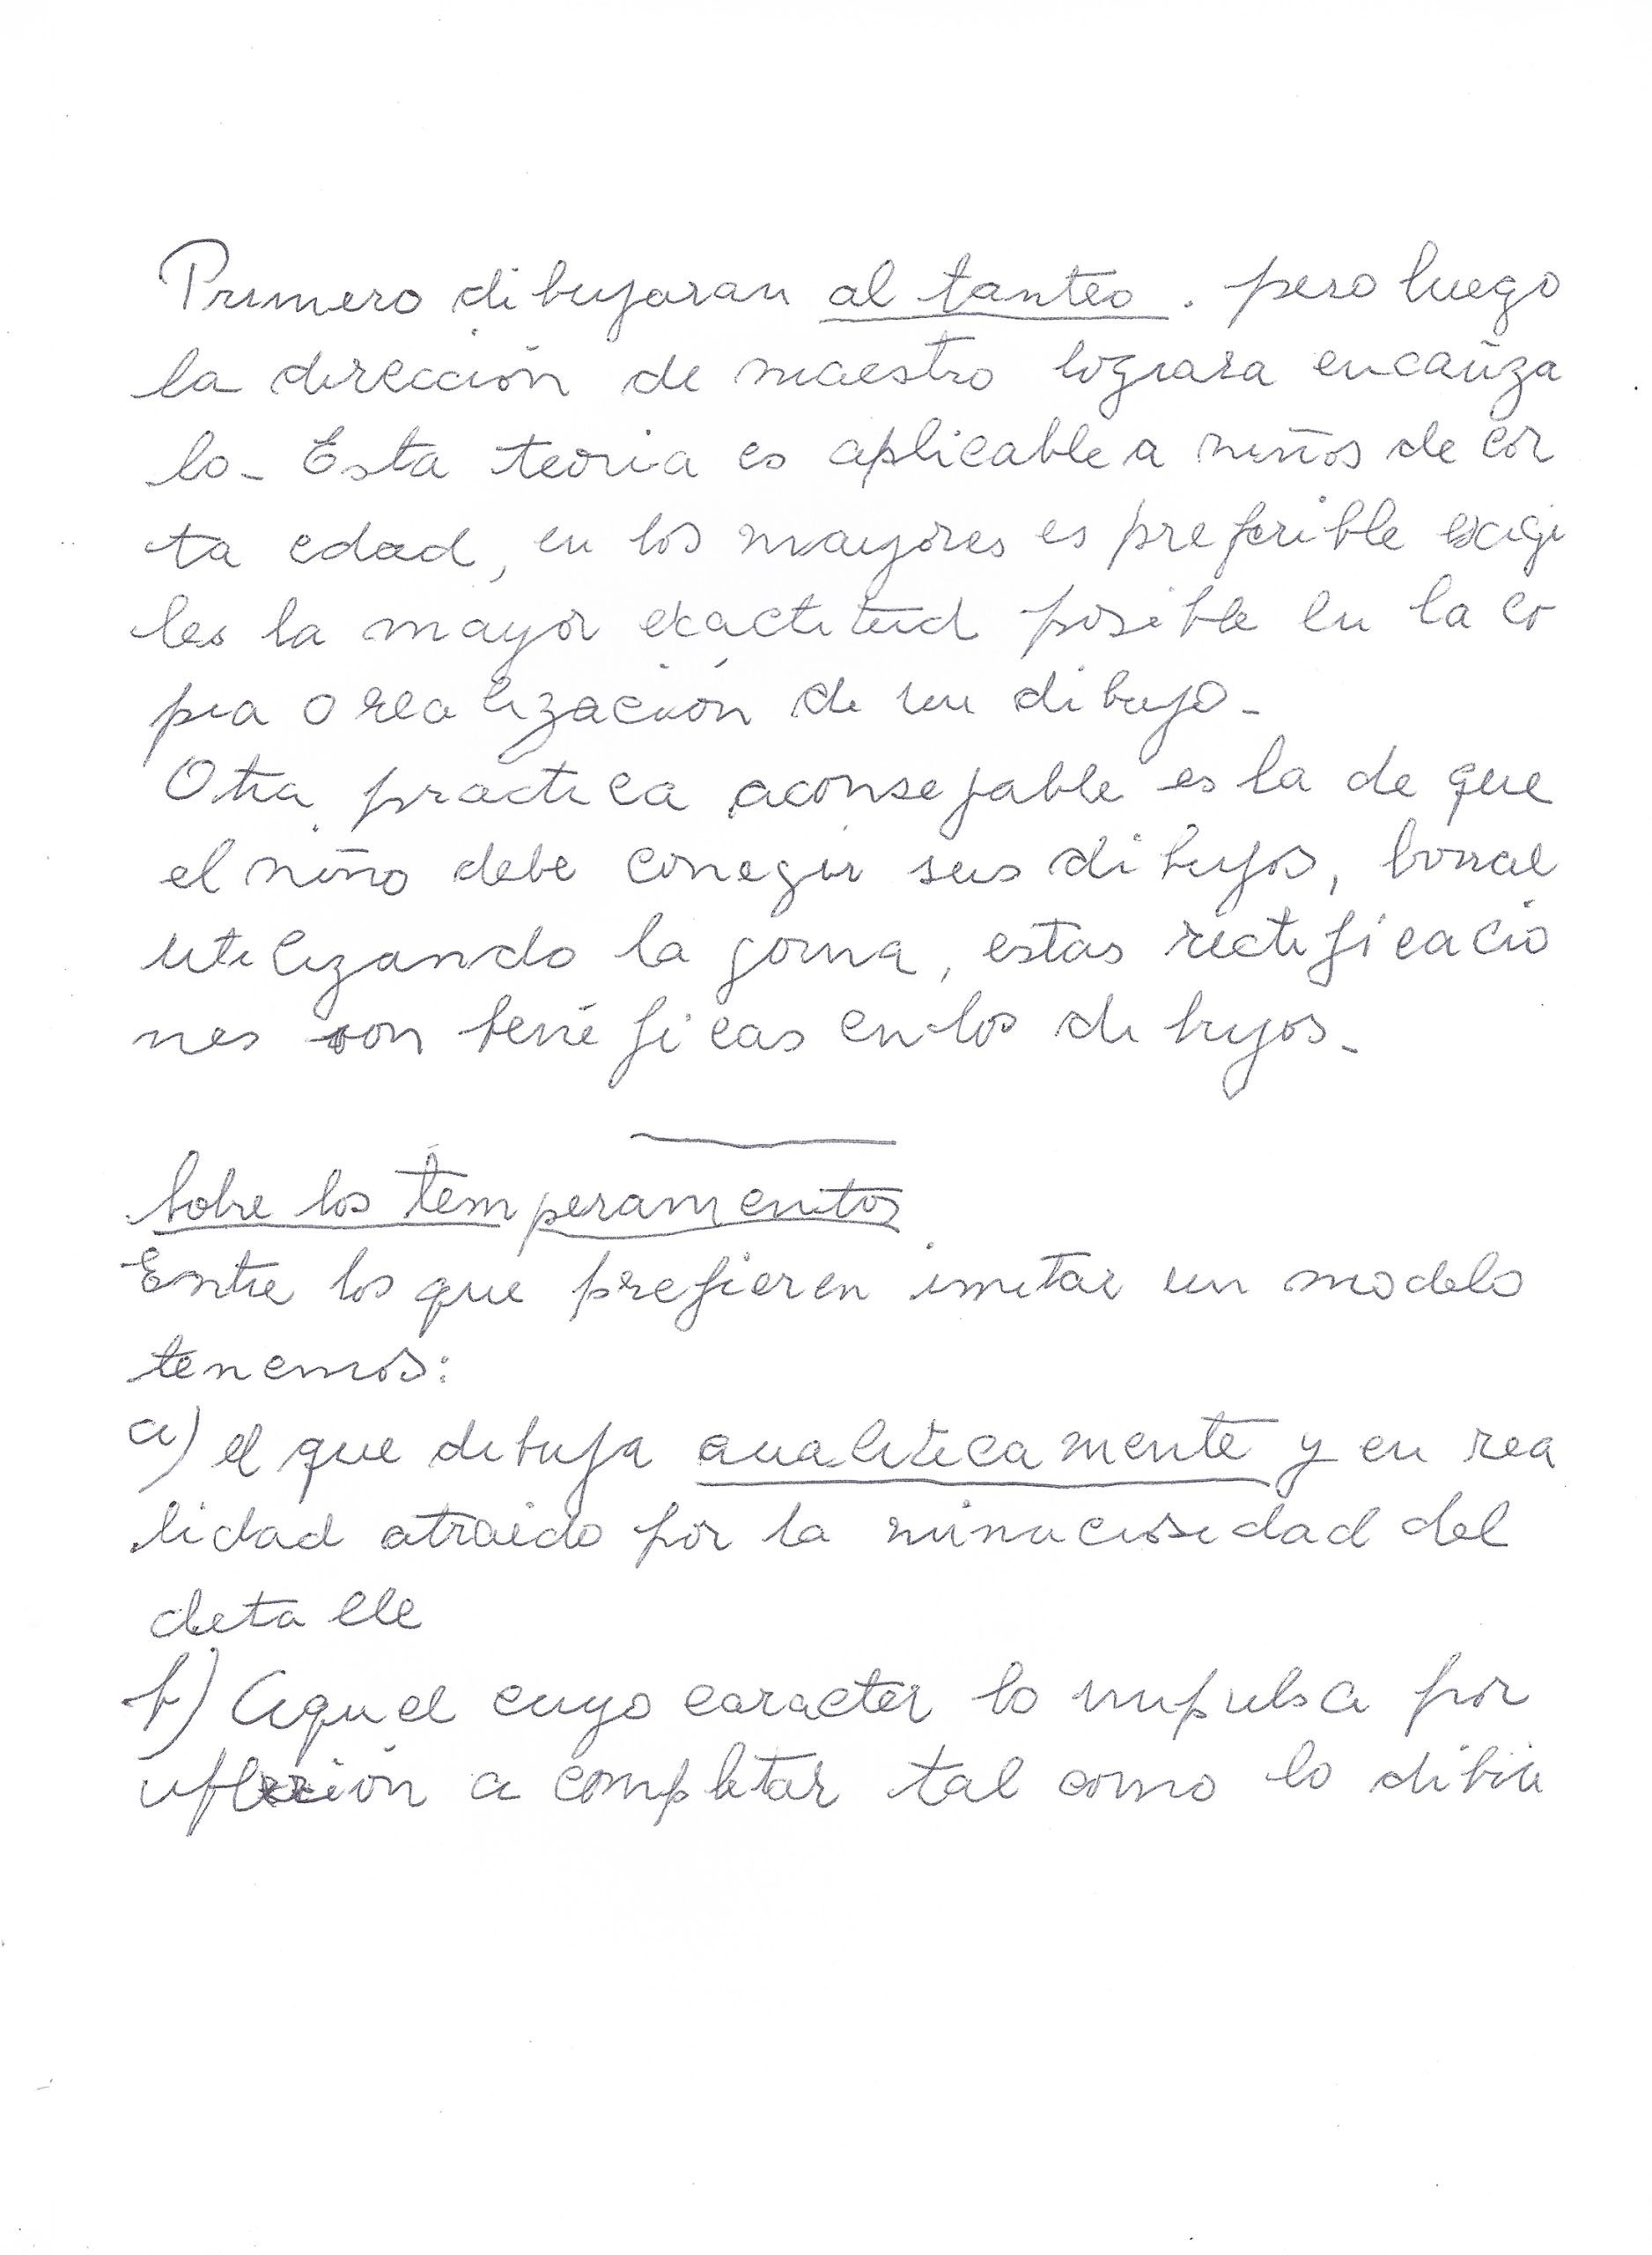 Primero dibujaran al tanteo. pero luego
la dirección de maestro lograra encauza
lo- Esta teoria es aplicable a niños de cor
ta edad, en los mayores es preferible exigi
les la mayor exactitud posible en la co
pia o realización de un dibujo-
Otra practica aconsejable es la de que
el niño debe corregir sus dibujos, borrar
utilizando la goma, estas rectificacio
nes son benéficas en los dibujos-
Sobre los temperamentos
Entre los que prefieren imitar un modelo
tenemos:
a) el que dibuja analiticamente y en rea
lidad atraido por la minuciosidad del
detalle
b) Aquel cuyo caracter lo impulsa por
a completar tal como lo